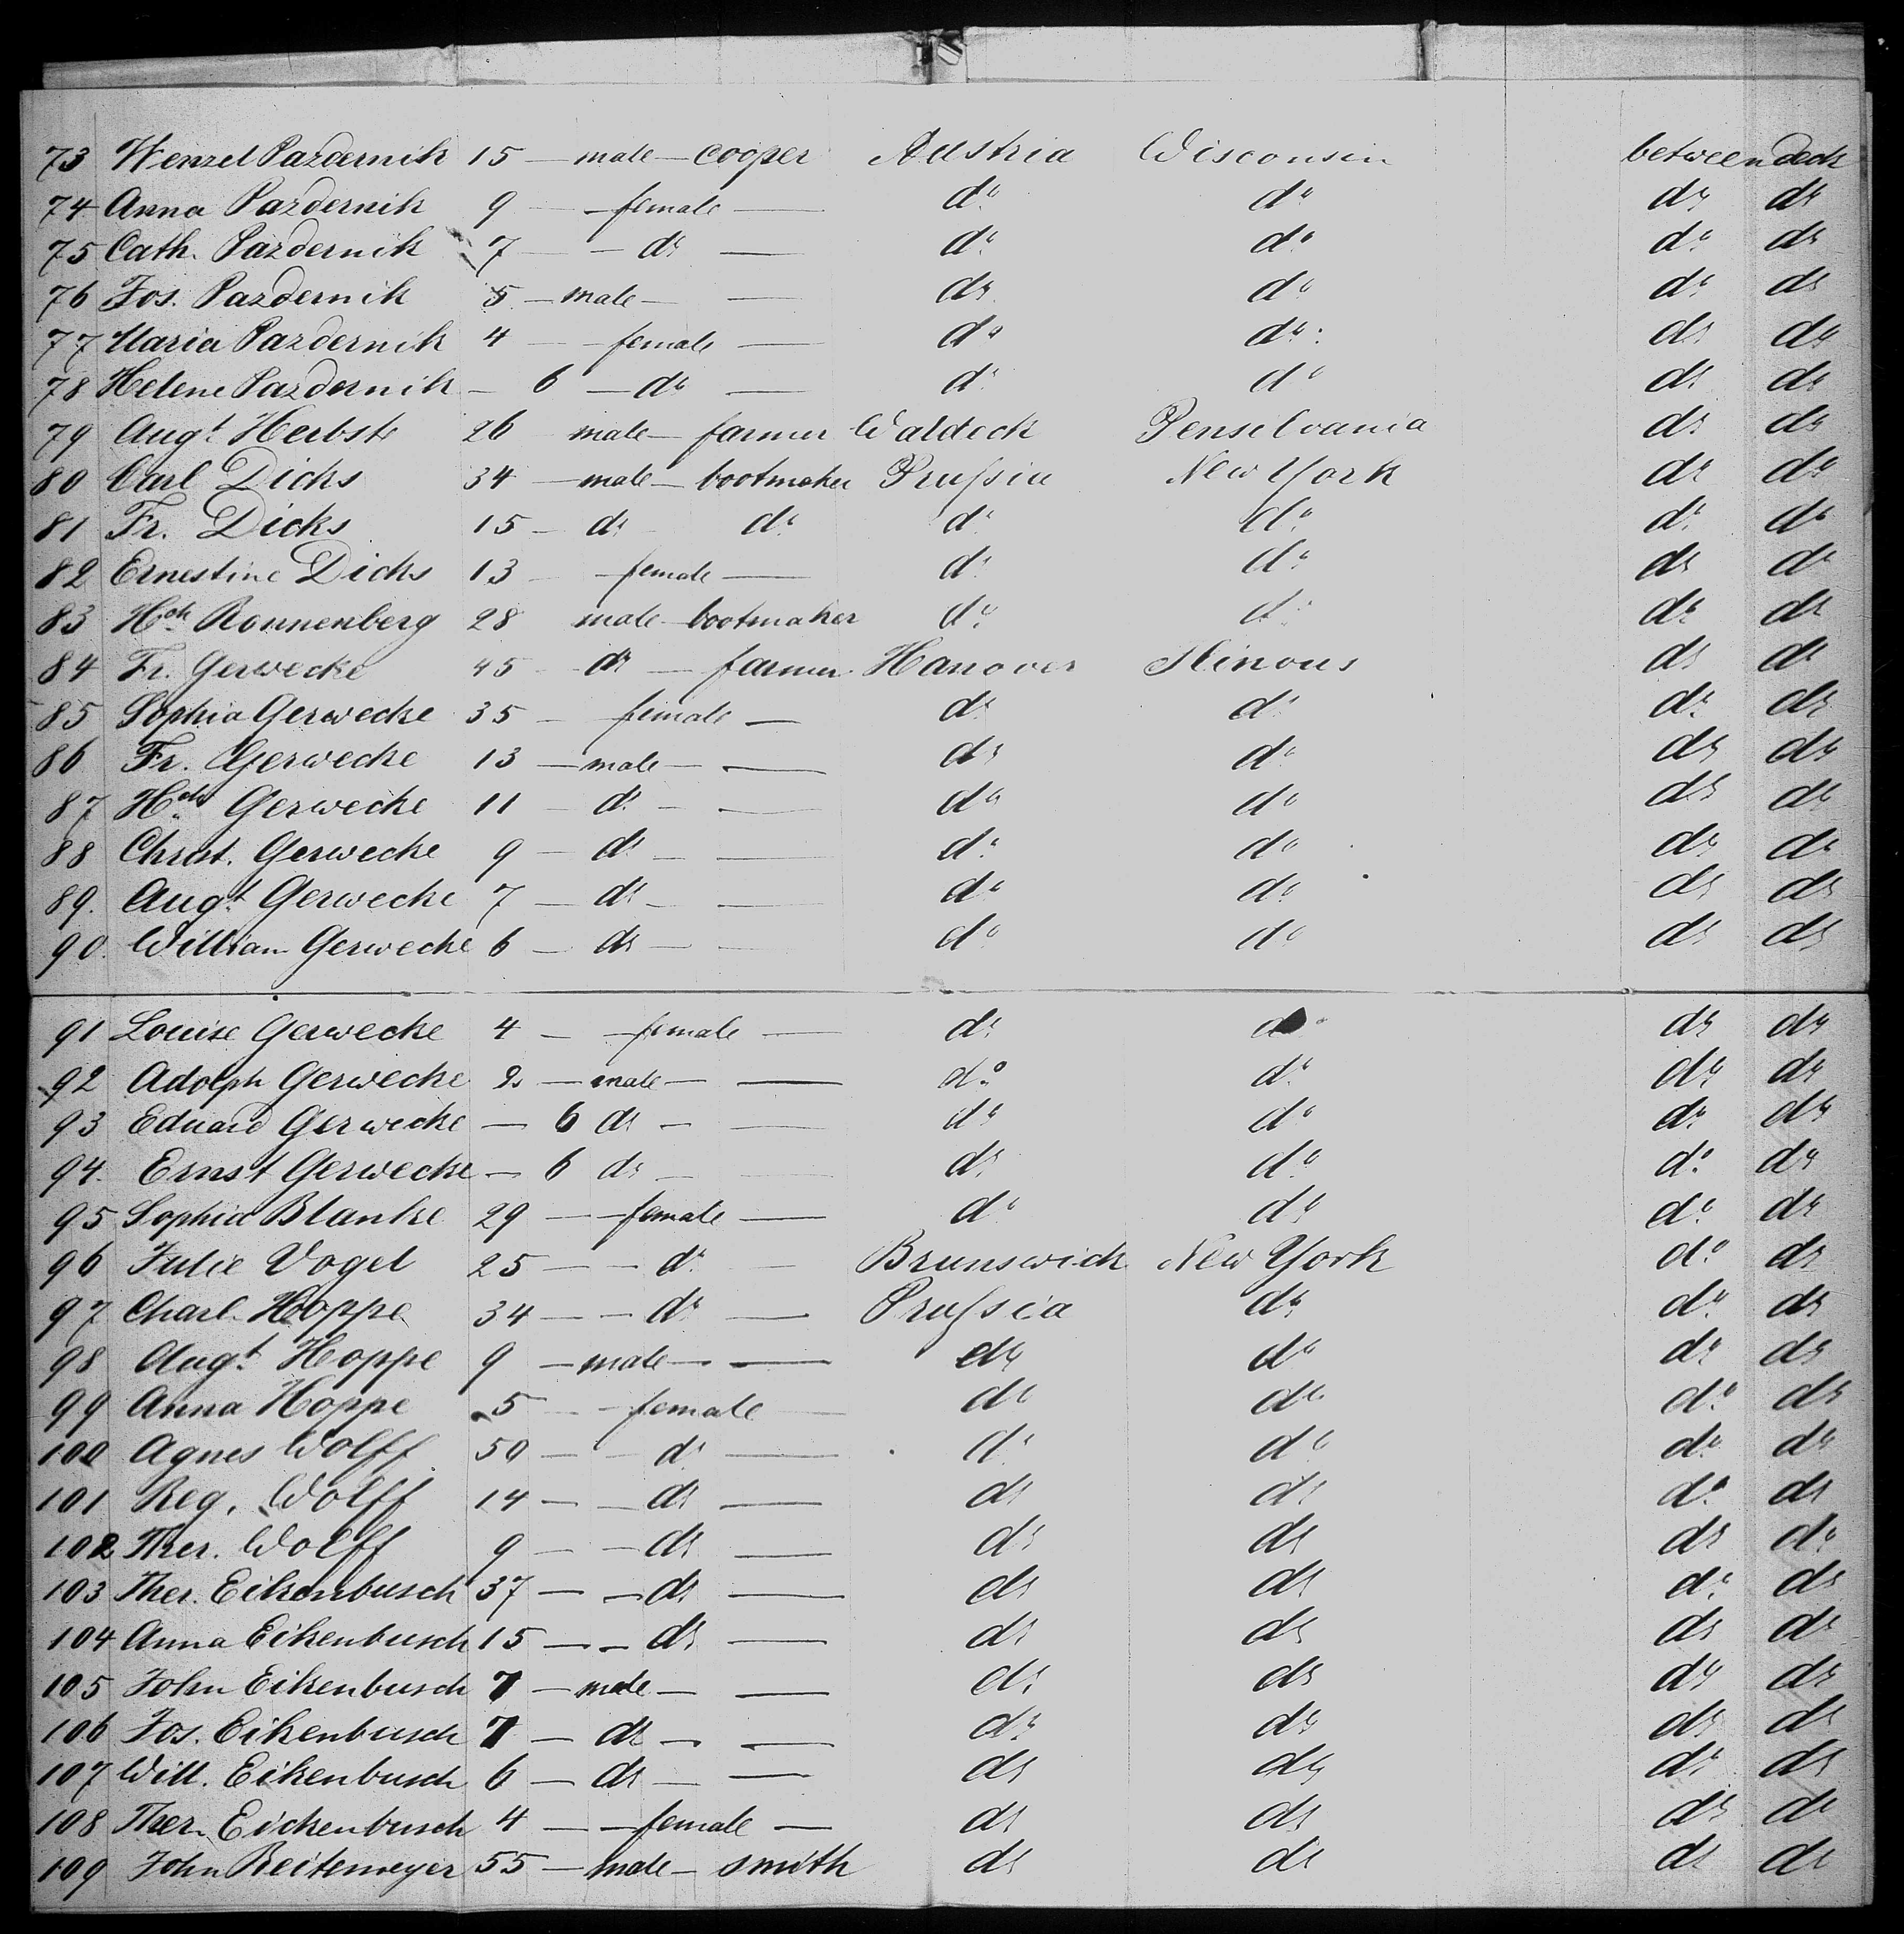 73 Wenzel Pazdernik 15 — male — cooper Austria Wisconsin between deck
74 Anna Pazdernik 9 — female — do do do do
75 Cath. Pazdernik 7 — do — do do do do
76 Jos. Pazdernik 5 — male — — do do do do
77 Maria Pazdernik 4 — female — do do do do
78 Helene Pazdernik — 6 — do — do do do do
79 Augt. Herbst 26 male — farmer Waldeck Penselvania do do
80 Carl Dicks 34 — male — bootmaker Prussia New York do do
81 Fr. Dicks 15 — do do do do do do
82 Ernestine Dicks 13 — female — do do do do
83 Hch. Ronnenberg 28 male — bootmaker do do do do
84 Fr. Gerwecke 45 — do — farmer Hanover Illinous do do
85 Sophia Gerwecke 35 — female — do do do do
86 Fr. Gerwecke 13 — male — — do do do do
87 Hch. Gerwecke 11 — do — — do do do do
88 Christ. Gerwecke 9 — do — — do do do do
89. Augt. Gerwecke 7 — do — — do do do do
90. William Gerwecke 6 — do — — do do do do
91 Louise Gerwecke 4 — female — do do do do
92 Adolph Gerwecke 2 — male — — do do do do
93 Eduard Gerwecke — 6 do — — do do do do
94. Ernst Gerwecke — 6 do — — do do do do
95 Sophia Blanke 29 — female — do do do do
96 Julie Vogel 25 — do — Brunswick New York do do
97 Charl. Hoppe 34 — do — Prussia do do do
98 Augt. Hoppe 9 — male — — do do do do
99 Anna Hoppe 5 — female — do do do do
100 Agnes Wolff 50 — do — do do do do
101 Reg. Wolff 14 — do — do do do do
102 Ther. Wolff 9 — do — do do do do
103 Ther. Eikenbusch 37 — do — do do do do
104 Anna Eikenbusch 15 — do — do do do do
105 John Eikenbusch 7 — male — — do do do do
106 Jos. Eikenbusch 7 — do — — do do do do
107 Will. Eikenbusch 6 — do — — do do do do
108 Ther. Eickenbusch 4 — female — do do do do
109 John Reitemeyer 55 — male — smith do do do do